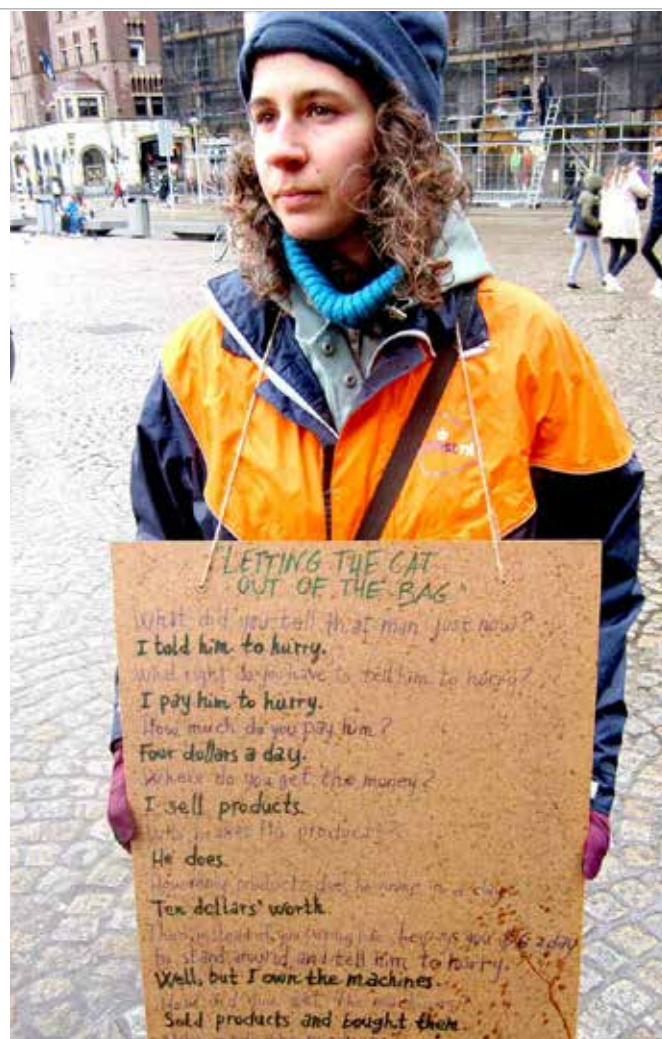 "LETTING THE CAT
OUT OF THE BAG"
What did you tell that man just now?
I told him to hurry.
What right do you have to tell him to hurry?
I pay him to hurry.
How much do you pay him?
Four dollars a day.
Where do you get the money?
I sell products.
Who makes the products?
He does.
How many products does he make in a day?
Ten dollars' worth.
Then, instead of you paying him, he pays you $6 a day
to stand around and tell him to hurry.
Well, but I own the machines.
How did you get the machines?
Sold products and bought them.